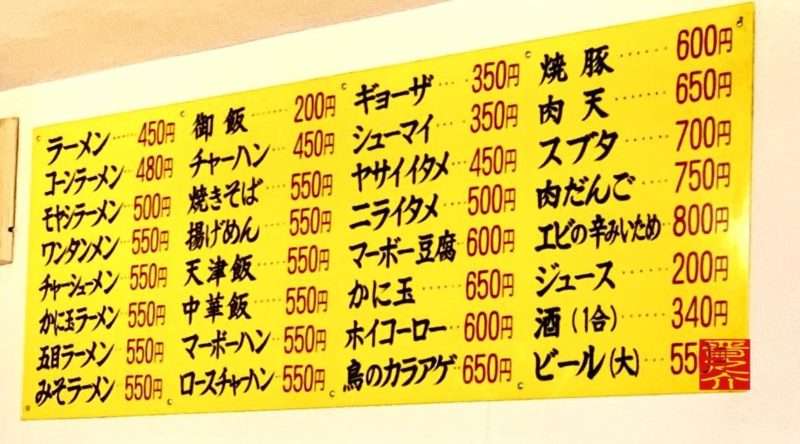 ラーメン……450円
コーンラーメン 480円
モヤシラーメン 500円
ワンタンメン 550円
チャーシューメン 550円
かに玉ラーメン 550円
五目ラーメン 550円
みそラーメン 550円
御飯……200円
チャーハン…450円
焼きそば……550円
揚げめん……550円
天津飯……550円
中華飯……550円
マーボーハン…550円
ロースチャーハン 550円
ギョーザ……350円
シューマイ……350円
ヤサイイタメ…450円
ニライタメ……500円
マーボー豆腐 600円
かに玉……650円
ホイコーロー…600円
鳥のカラアゲ…650円
焼豚……600円
肉天……650円
スブタ……700円
肉だんご……750円
エビの辛みいため…800円
ジュース……200円
酒(1合)……340円
ビール(大)……55